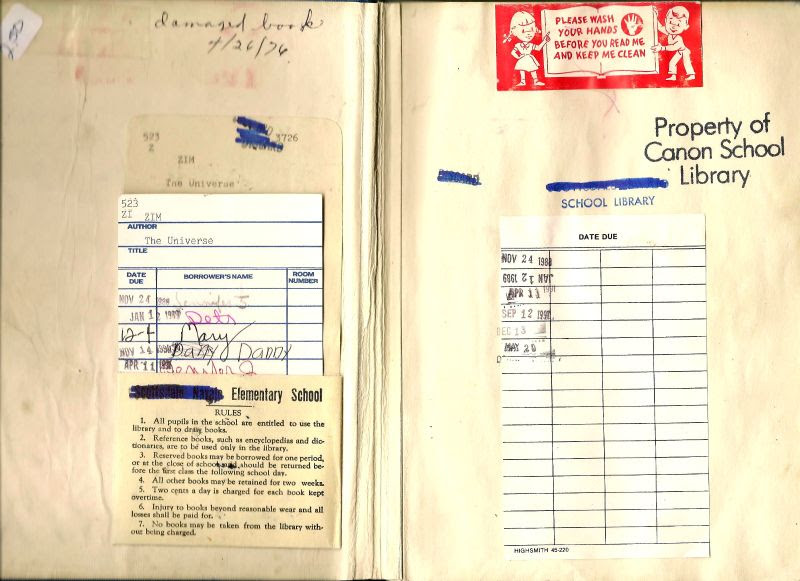 damaged book
4/26/76
523
Z
3726
ZIM
The Universe
523
ZI ZIM
AUTHOR
The Universe
TITLE
DATE DUE
BORROWER'S NAME
ROOM NUMBER
NOV 24 Jennifer J
JAN 12 1989
12-4 Mary
NOV 14 1990 Danny Danny
APR 11 Jennifer
Elementary School
RULES
1. All pupils in the school are entitled to use the
library and to draw books.
2. Reference books, such as encyclopedias and dic-
tionaries, are to be used only in the library.
3. Reserved books may be borrowed for one period,
or at the close of school should be returned be-
fore the first class the following school day.
4. All other books may be retained for two weeks.
5. Two cents a day is charged for each book kept
overtime.
6. Injury to books beyond reasonable wear and all
losses shall be paid for.
7. No books may be taken from the library with-
out being charged.
PLEASE WASH
YOUR HANDS
BEFORE YOU READ ME
AND KEEP ME CLEAN
Property of
Canon School
Library
DISCARD
SCHOOL LIBRARY
DATE DUE
NOV 24
JAN 12 1989
APR 11 1991
SEP 12
DEC 13
MAY 20
HIGHSMITH 45-220